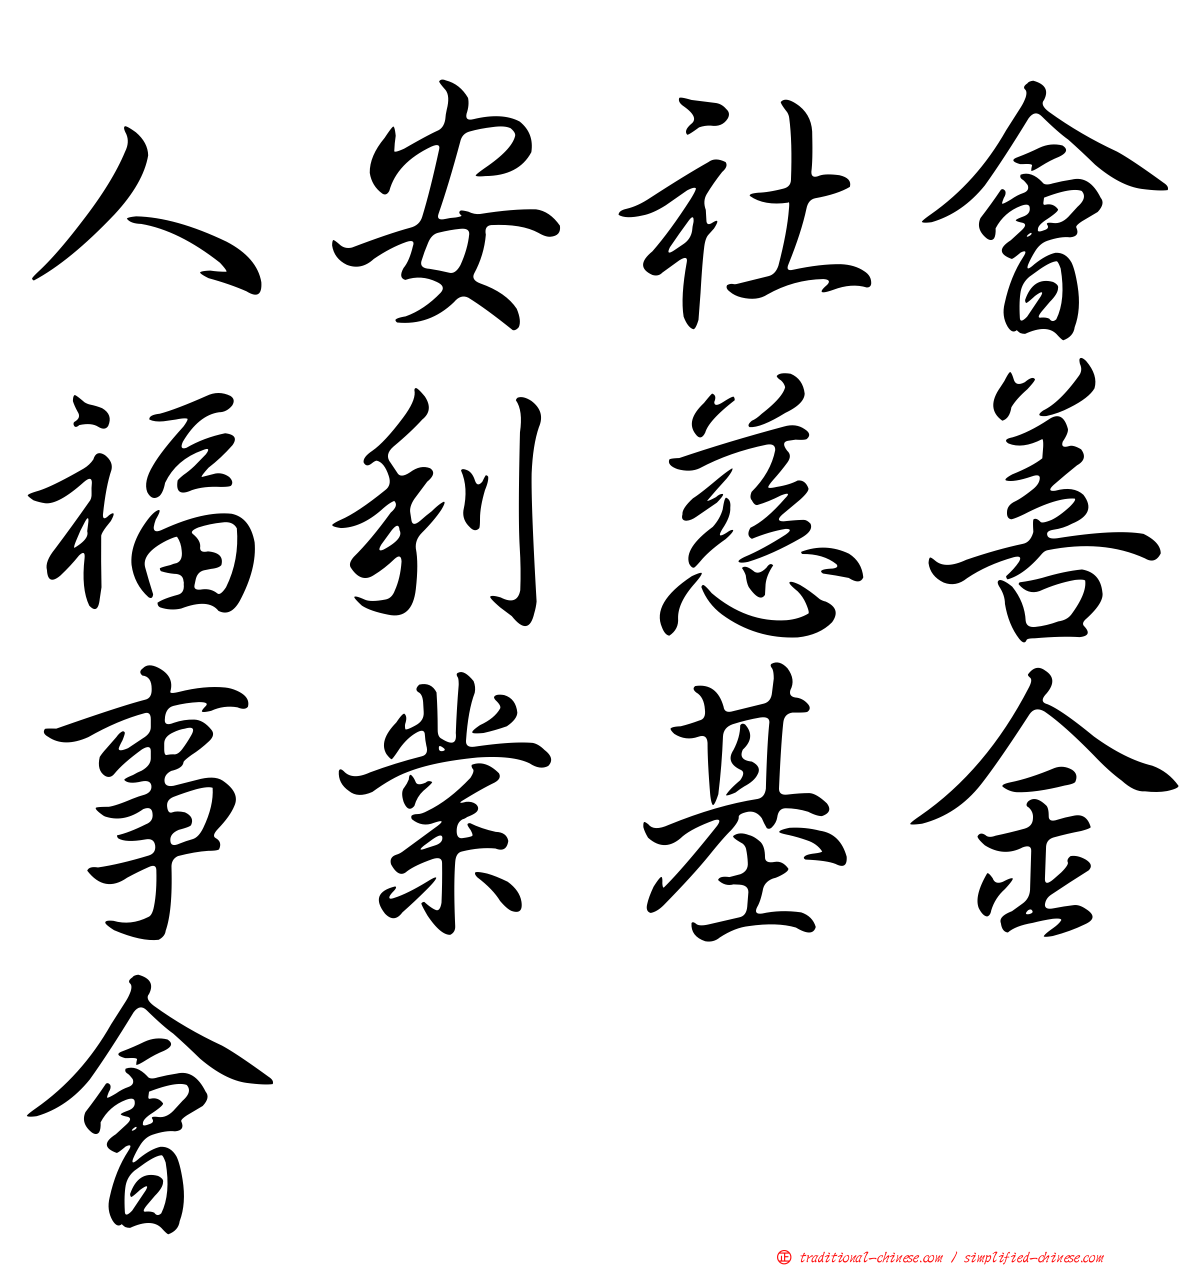 人安社會
福利慈善
事業基金
會
正 traditional-chinese.com / simplified-chinese.com